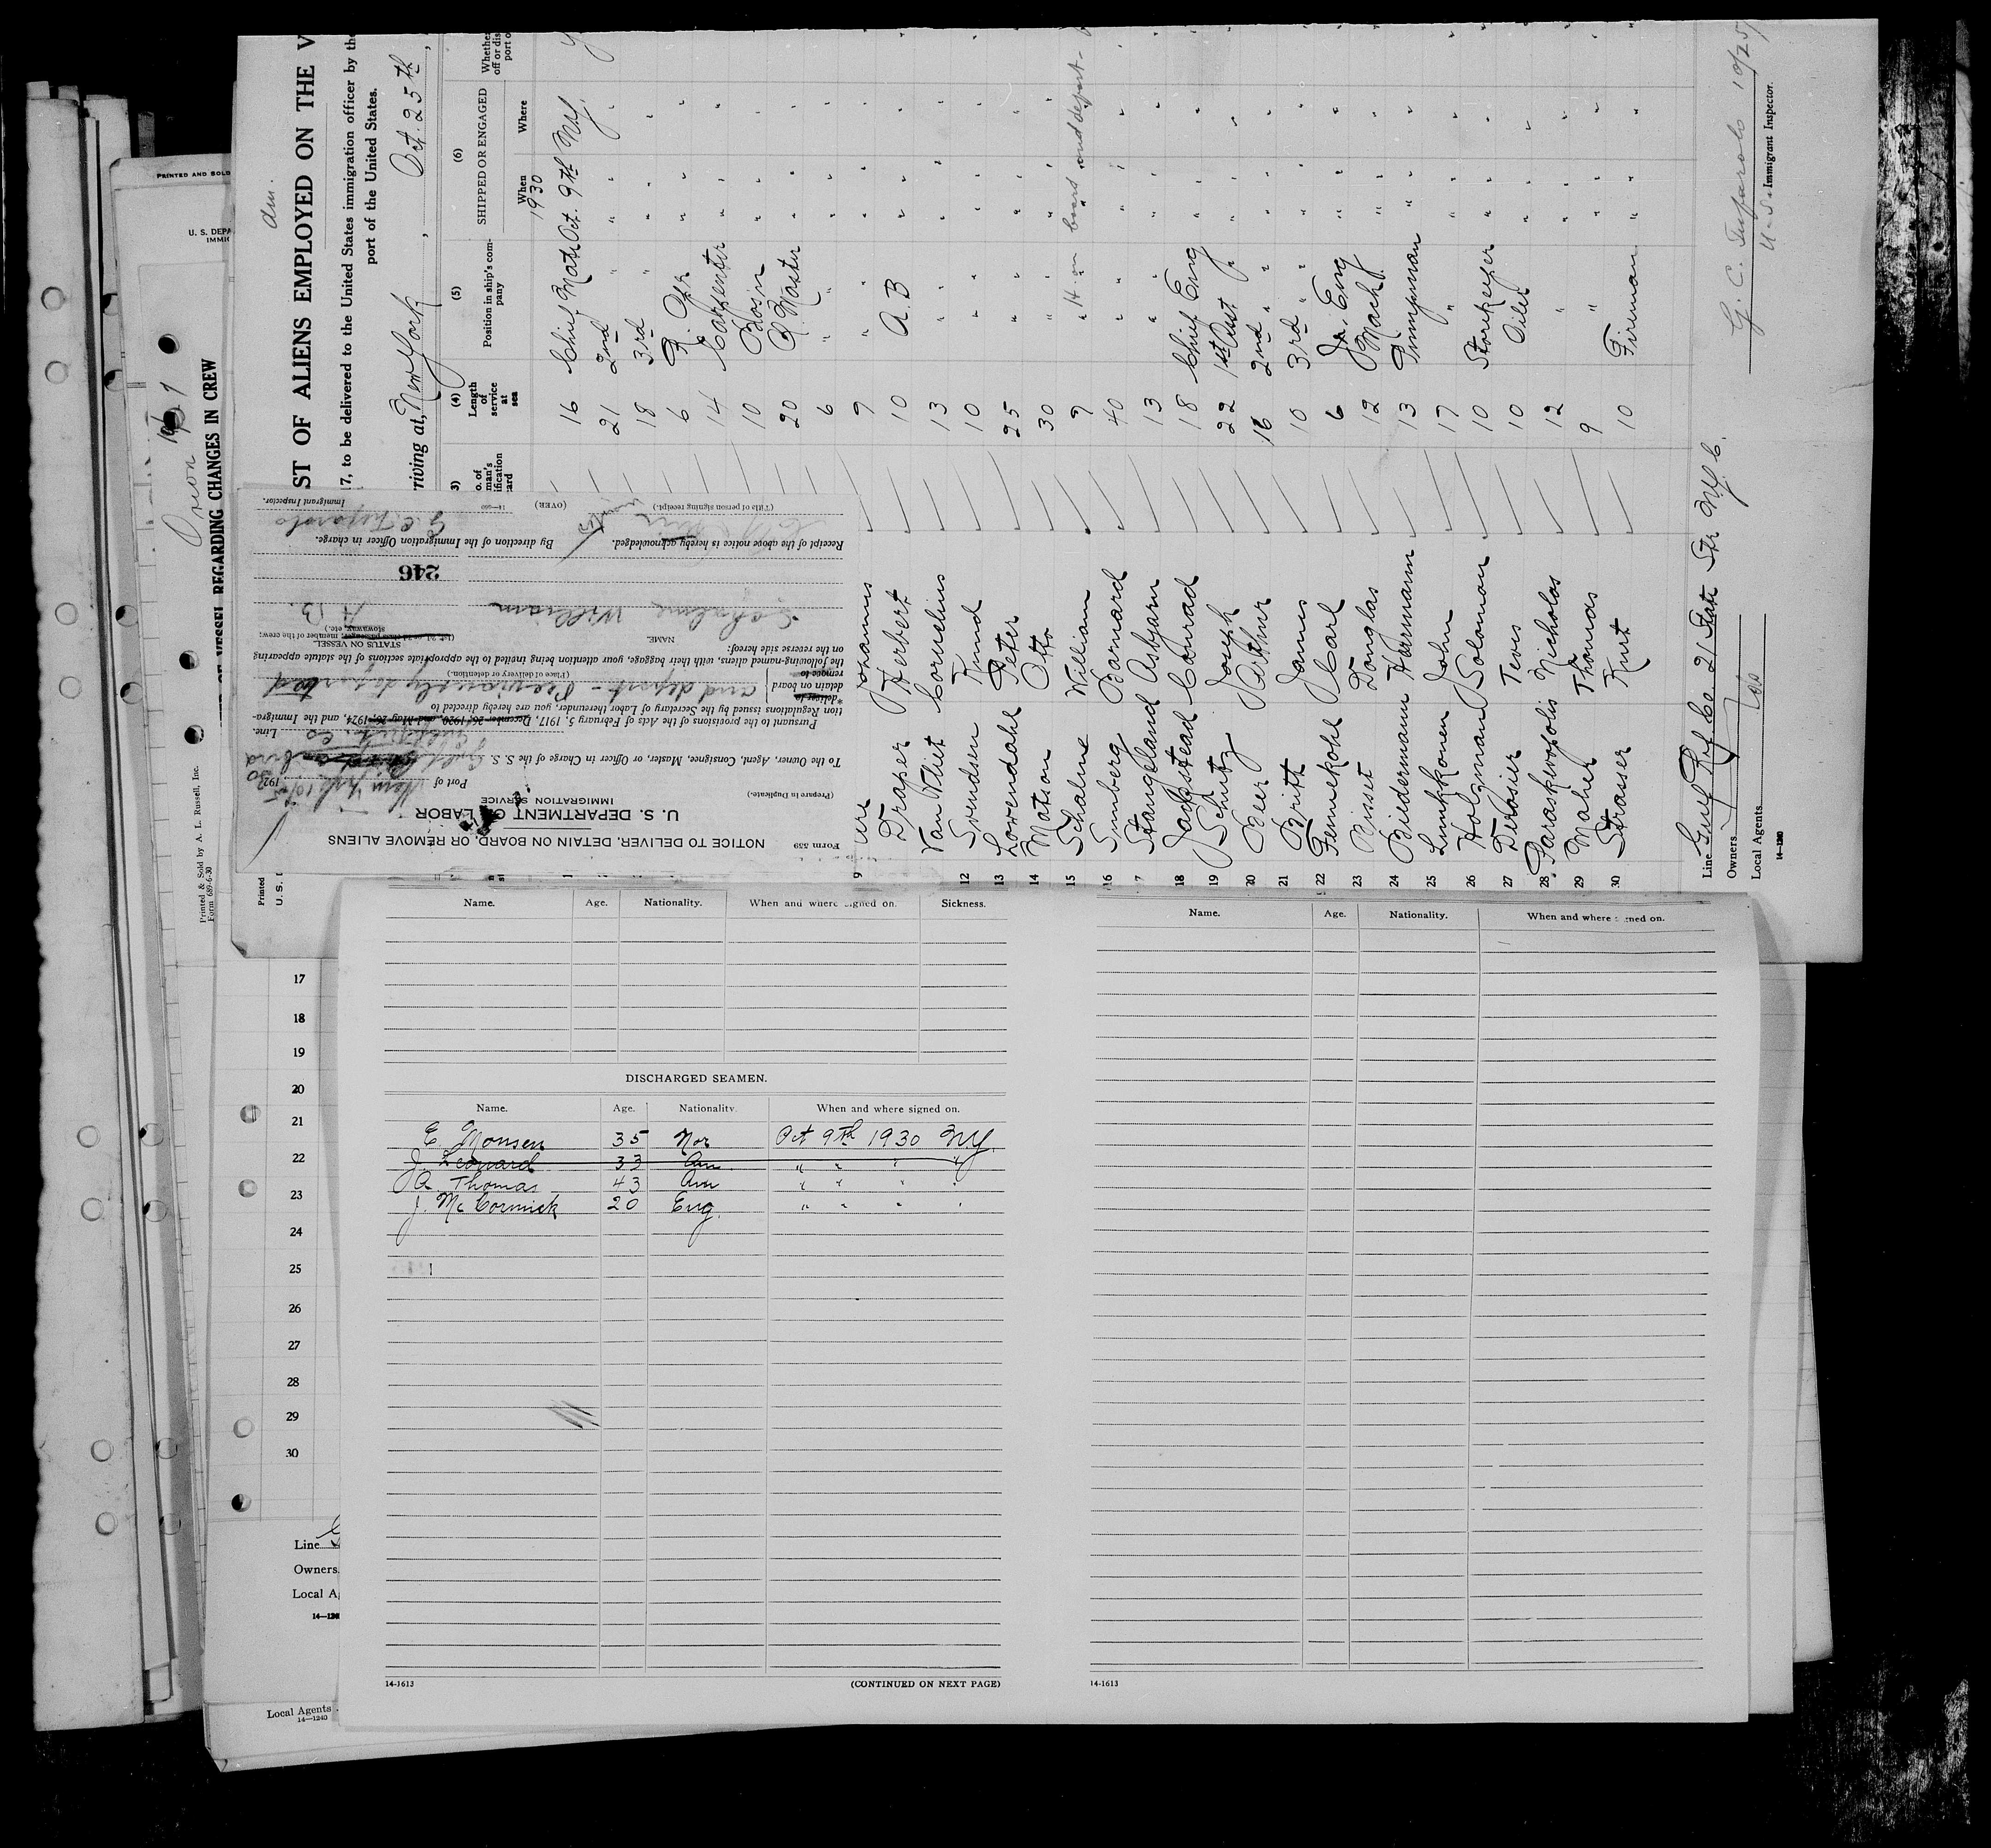 Am.
ST OF ALIENS EMPLOYED ON THE V
17, to be delivered to the United States immigration officer by the
port of the United States.
riving at, New York, Oct. 25th,
(3)
o. of
man's
ification
card
(4)
Length
of
service
at
sea
(5)
Position in ship's com-
pany
(6)
SHIPPED OR ENGAGED
When
1930
Where
Whether
off or dis
port o
16 Chief Mate Oct. 9th N.Y.
21 2nd " " " "
18 3rd " " " "
6 R. Opr " " "
14 Carpenter " " "
10 Bosin " " "
20 Q. Master " " "
6 " " " "
9 Johannus 9 " " " "
Draper Herbert 10 A.B " " "
Van Vliet Cornelius 13 " " " "
12 Svendsen Knud 10 " " " "
13 Lowendahl Peter 25 " " " "
14 Matson Otto 30 " " " "
15 Schalme William 9 " H. on board and depart-
16 Sunberg Barnard 40 " " " "
17 Stangeland Asbjarn 13 " " " "
18 Jackstead Conrad 18 Chief Eng " " "
19 Schutz Joseph 22 1st Asst " " " "
20 Beer Arthur 16 2nd " " " "
21 Britt James 10 3rd " " " "
22 Fennekohl Carl 6 Jr. Eng " " "
23 Bisset Douglas 12 Mach. " " "
24 Biedermann Harmann 13 Pumpman " " "
25 Lunkkonen John 17 " " " "
26 Holzman Soloman 10 Storekeeper " " "
27 Derosier Teves 10 Oiler " " "
28 Paraskevopolis Nicholas 12 " " " "
29 Maher Thomas 9 " " " "
30 Strasser Knut 10 Fireman " " "
Line Gulf Ref Co 21 State Str N.Y.C.
Owners
Local Agents
14-1240
G. C. Tufarolo 10/25/
U.S. Immigrant Inspector.
Form 559
NOTICE TO DELIVER, DETAIN ON BOARD, OR REMOVE ALIENS
U. S. DEPARTMENT OF LABOR
IMMIGRATION SERVICE
(Prepare in Duplicate.)
Port of New York 10/25 1930
To the Owner, Agent, Consignee, Master, or Officer in Charge of the S. S.
Line.
Pursuant to the provisions of the Acts of February 5, 1917, December 26, 1920, and May 26, 1924, and the Immigra-
tion Regulations issued by the Secretary of Labor thereunder, you are hereby directed to
*deliver to
detain on board
remove to
and depart - Previously deported
(Place of delivery or detention.)
the following-named aliens, with their baggage, your attention being invited to the appropriate sections of the statute appearing
on the reverse side hereof:
NAME.
STATUS ON VESSEL
(1st, 2d or 3d class passenger, member of the crew;
stowaway, etc.)
Schalme William A B.
246
Receipt of the above notice is hereby acknowledged.
By direction of the Immigration Officer in charge.
G. C. Tufarolo
(Title of person signing receipt.)
(OVER)
Immigrant Inspector.
PRINTED AND SOLD
U. S. DEPA
IMMIG
Orion
REGARDING CHANGES IN CREW
Printed & Sold by A. L. Russell, Inc.
Form 689-6-30
Printed
U. S. I
Name. Age. Nationality. When and where signed on. Sickness.
DISCHARGED SEAMEN.
Name. Age. Nationality. When and where signed on.
E. Monsen 35 Nor Oct 9th 1930 N.Y.
J. Leonard 33 Am " " " "
A. Thomas 43 Am " " " "
J. McCormick 20 Eng. " " " "
14-1613
(CONTINUED ON NEXT PAGE)
Name. Age. Nationality. When and where signed on.
14-1613
17
18
19
20
21
22
23
24
25
26
27
28
29
30
Line
Owners
Local A
14-1240
Local Agents
14-1240